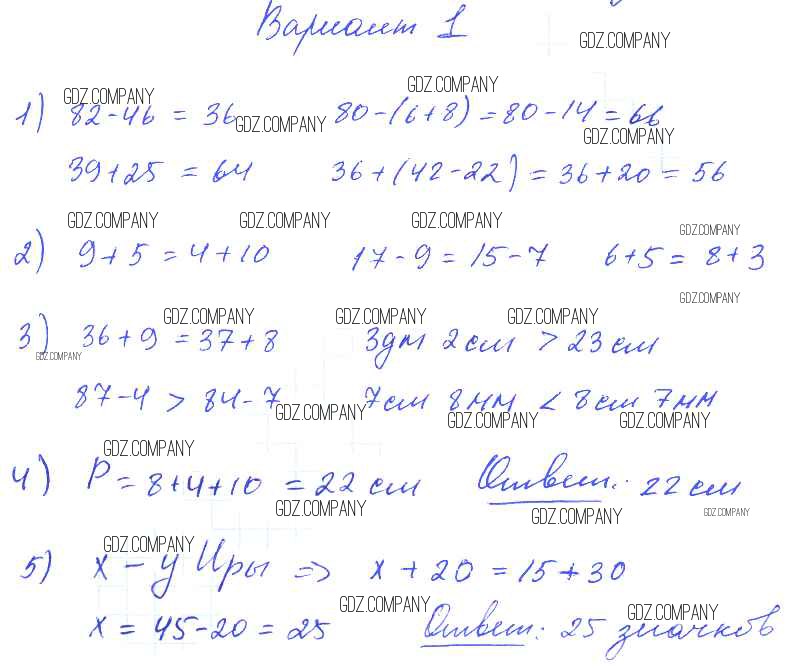 Вариант 1
GDZ.COMPANY
GDZ.COMPANY GDZ.COMPANY
1) 82-46 = 36 80-(6+8) = 80-14 = 66
GDZ.COMPANY GDZ.COMPANY
39+25 = 64 36+(42-22) = 36+20 = 56
GDZ.COMPANY GDZ.COMPANY GDZ.COMPANY GDZ.COMPANY
2) 9+5 = 4+10 17-9 = 15-7 6+5 = 8+3
GDZ.COMPANY
GDZ.COMPANY GDZ.COMPANY GDZ.COMPANY
3) 36+9 = 37+8 3дм 2см > 23см
GDZ.COMPANY
87-4 > 84-7 7см 8мм < 8см 7мм
GDZ.COMPANY GDZ.COMPANY GDZ.COMPANY
GDZ.COMPANY
4) P = 8+4+10 = 22 см Ответ: 22 см
GDZ.COMPANY GDZ.COMPANY GDZ.COMPANY
GDZ.COMPANY
5) x - у Иры => x + 20 = 15 + 30
GDZ.COMPANY GDZ.COMPANY
x = 45-20 = 25 Ответ: 25 значков